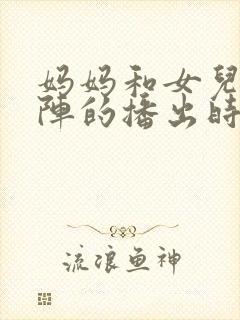 妈妈和女兒
陣的播出時
流浪鱼神